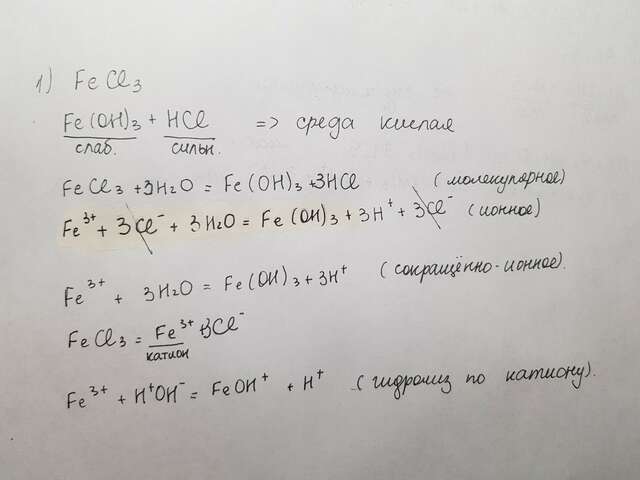 1) FeCl₃
Fe(OH)₃ + HCl => среда кислая
слаб. сильн.
FeCl₃ + 3H₂O = Fe(OH)₃ + 3HCl (молекулярное)
Fe³⁺ + 3Cl⁻ + 3H₂O = Fe(OH)₃ + 3H⁺ + 3Cl⁻ (ионное)
Fe³⁺ + 3H₂O = Fe(OH)₃ + 3H⁺ (сокращённо-ионное).
FeCl₃ = Fe³⁺ + 3Cl⁻
катион
Fe³⁺ + H⁺OH⁻ = FeOH⁺ + H⁺ (гидролиз по катиону).